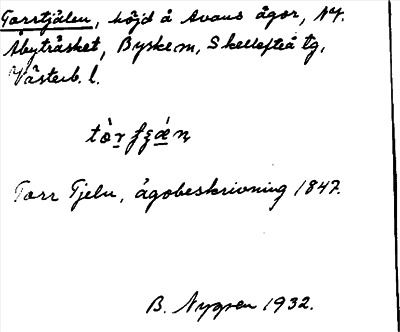 Torrtjälen, höjd å Avans ägor, NV.
Åbyträsket, Byske sn, Skellefteå tg,
Västerb. l.
Torr Tjeln, ägobeskrivning 1847.
B. Nygren 1932.